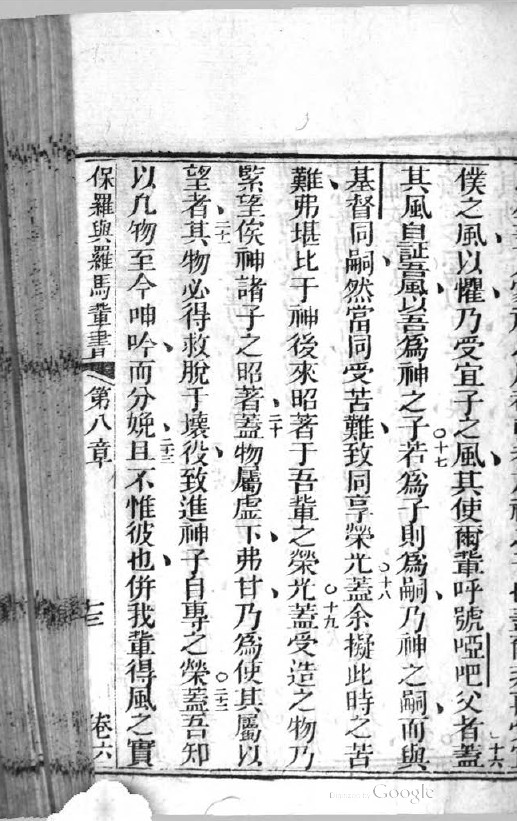 僕之風以懼乃受宜子之風其使爾輩呼號啞吧父者蓋十六
其風自証吾風以吾為神之子十七若為子則為嗣乃神之嗣而與
基督同嗣然當同受苦難致同享榮光十八蓋余擬此時之苦
難弗堪比于神後來昭著于吾輩之榮光十九蓋受造之物乃
緊望俟神諸子之昭著二十蓋物屬虛下弗甘乃為使其屬以
望者二十一其物必得救脫于壞役致進神子自專之榮二十二蓋吾知
以凡物至今呻吟而分娩二十三且不惟彼也併我輩得風之實
保羅與羅馬輩書 第八章 卷六
Google